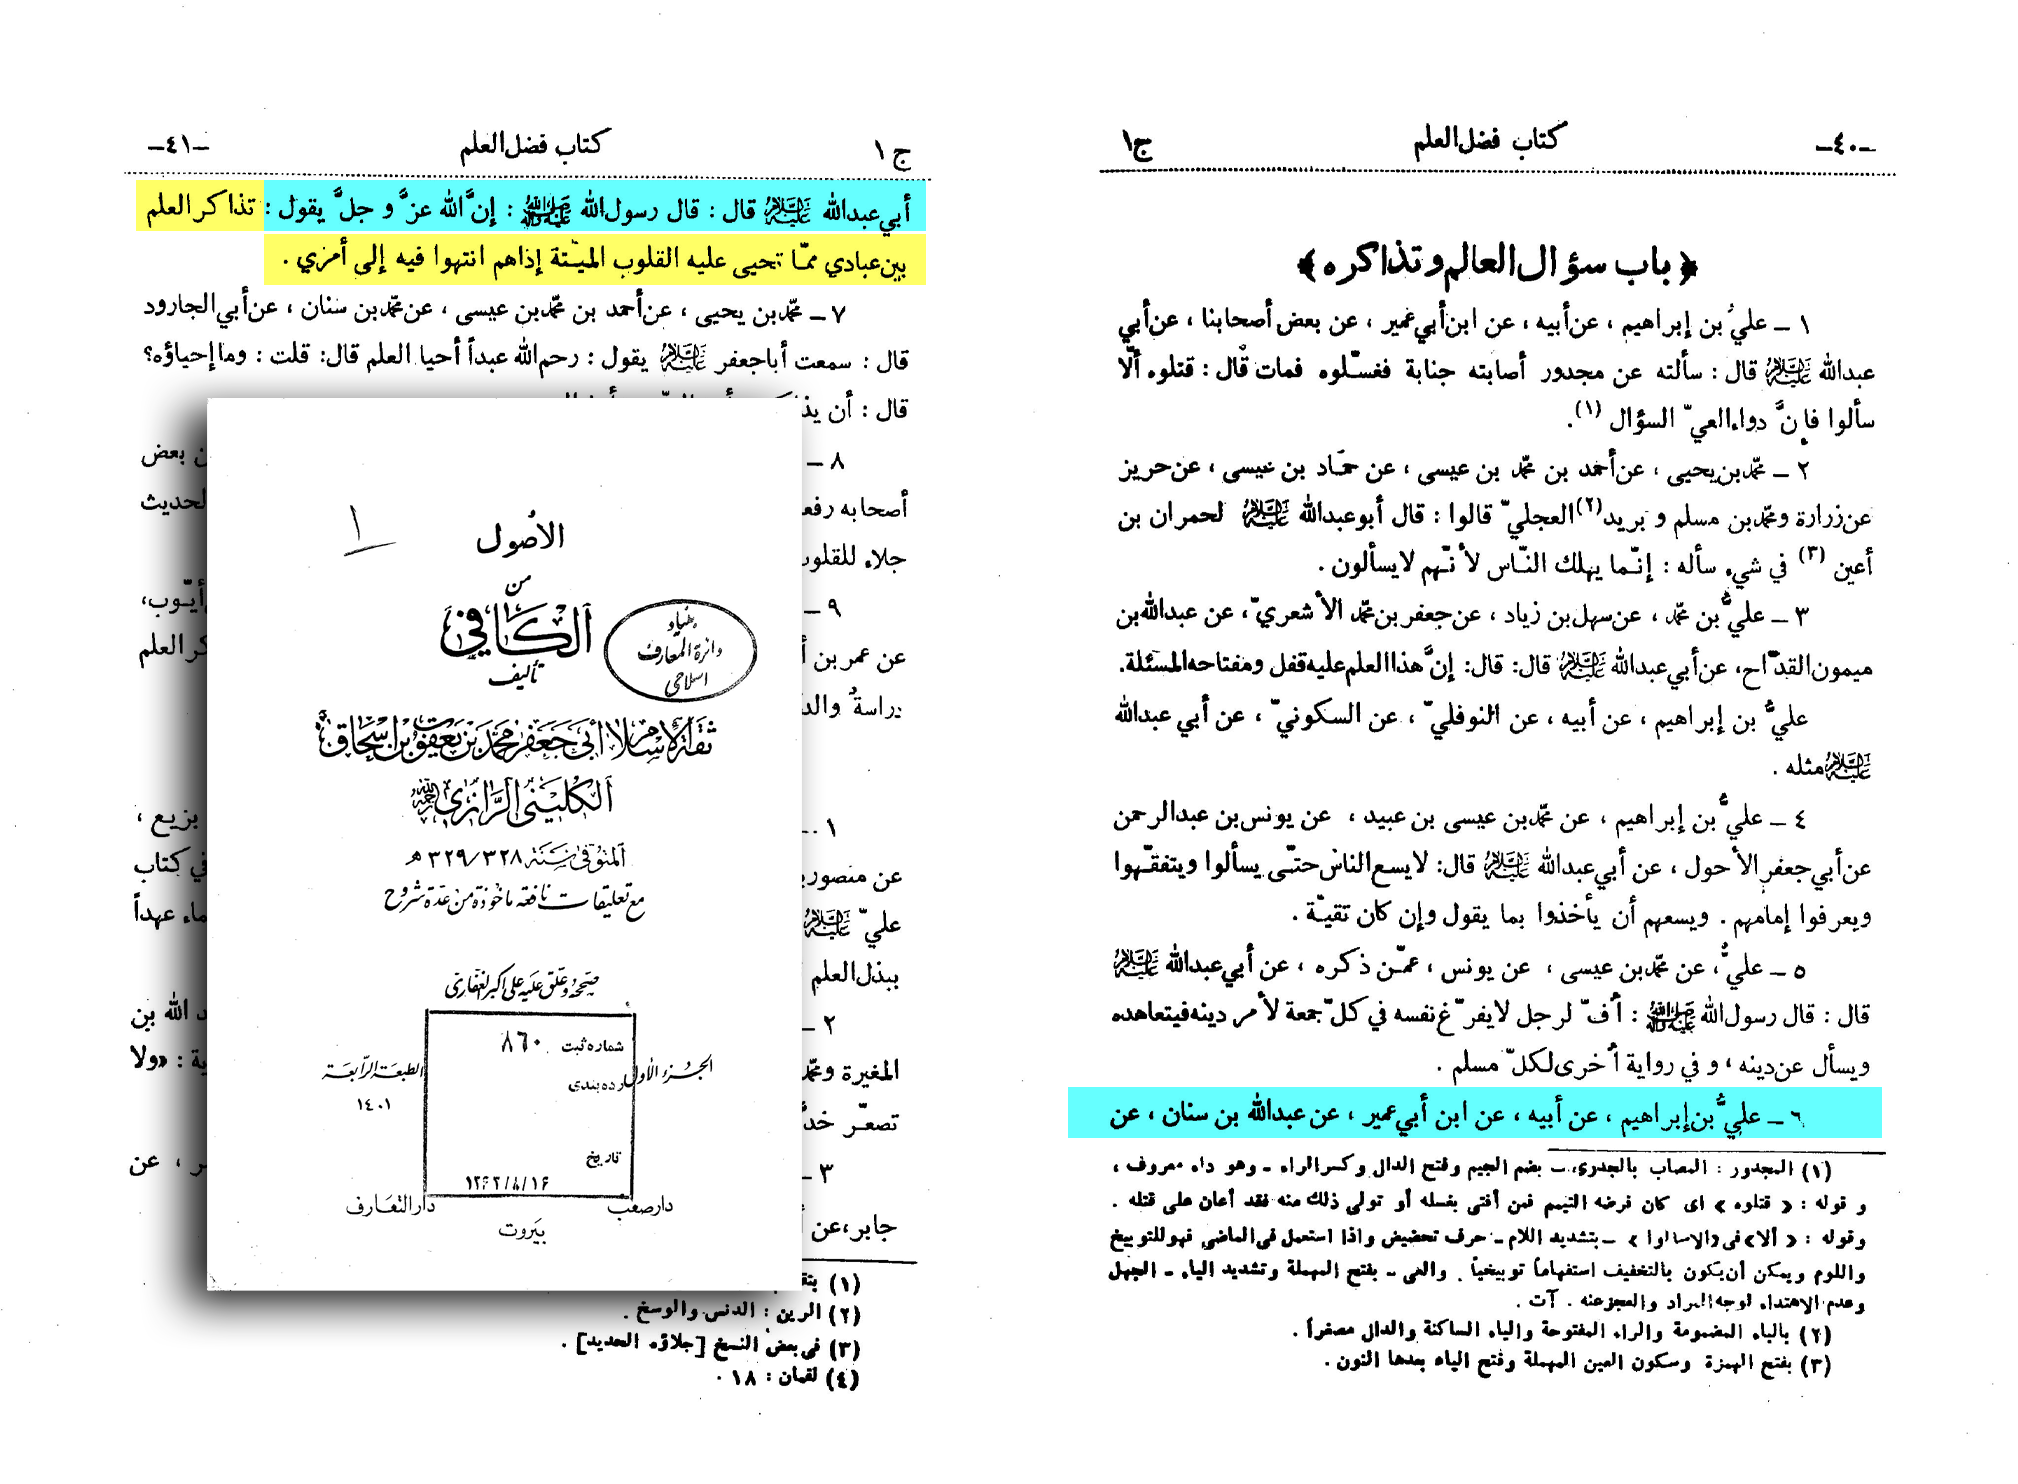 -٤٠- كتاب فضل العلم ج١
﴿ باب سؤال العالم وتذاكره ﴾
١ ـ عليُّ بن إبراهيم ، عن أبيه ، عن ابن أبي عمير ، عن بعض أصحابنا ، عن أبي
عبدالله عليه السلام قال : سألته عن مجدور أصابته جنابة فغسّلوه فمات قال : قتلوه ألّا
سألوا فإنَّ دواء العيّ السؤال (١).
٢ ـ محمّد بن يحيى ، عن أحمد بن محمّد بن عيسى ، عن حمّاد بن عيسى ، عن حريز
عن زرارة ومحمّد بن مسلم و بريد(٢) العجليّ قالوا : قال أبوعبدالله عليه السلام لحمران بن
أعين (٣) في شيء سأله : إنّما يهلك النّاس لأنّهم لا يسألون .
٣ ـ عليُّ بن محمّد ، عن سهل بن زياد ، عن جعفر بن محمّد الأشعريّ ، عن عبدالله بن
ميمون القدّاح، عن أبي عبدالله عليه السلام قال: قال: إنَّ هذا العلم عليه قفل ومفتاحه المسئلة.
عليُّ بن إبراهيم ، عن أبيه ، عن النوفليّ ، عن السكونيّ ، عن أبي عبدالله
عليه السلام مثله .
٤ ـ عليُّ بن إبراهيم ، عن محمّد بن عيسى بن عبيد ، عن يونس بن عبدالرحمن
عن أبي جعفر الأحول ، عن أبي عبدالله عليه السلام قال: لا يسع الناس حتّى يسألوا ويتفقّهوا
ويعرفوا إمامهم . ويسعهم أن يأخذوا بما يقول وإن كان تقيّة .
٥ ـ عليٌّ، عن محمّد بن عيسى ، عن يونس ، عمّن ذكره ، عن أبي عبدالله عليه السلام
قال : قال رسول الله صلى الله عليه وآله : أفّ لرجل لا يفرّغ نفسه في كلّ جمعة لأمر دينه فيتعاهده
ويسأل عن دينه ، و في رواية أخرى لكلّ مسلم .
٦ ـ عليُّ بن إبراهيم ، عن أبيه ، عن ابن أبي عمير ، عن عبدالله بن سنان ، عن
(١) المجدور : المصاب بالجدرى، ـ بضم الجيم وفتح الدال وكسر الراء ـ وهو داء معروف ،
و قوله : « قتلوه » اى كان فرضه التيمم فمن أفتى بغسله أو تولى ذلك منه فقد أعان على قتله .
وقوله : « ألا» فى «الا سالوا » ـ بتشديد اللام ـ حرف تحضيض واذا استعمل فى الماضى فهو للتوبيخ
واللوم ويمكن أن يكون بالتخفيف استفهاماً توبيخياً . والعى ـ بفتح المهملة وتشديد الياء ـ الجهل
وعدم الاهتداء لوجه المراد والعجز عنه . آت .
(٢) بالباء المضمومة والراء المفتوحة والياء الساكنة والدال مصغراً .
(٣) بفتح الهمزة وسكون العين المهملة وفتح الياء بعدها النون .
ج ١ كتاب فضل العلم -٤١-
أبي عبدالله عليه السلام قال : قال رسول الله صلى الله عليه وآله : إنَّ الله عزَّ و جلَّ يقول : تذاكر العلم
بين عبادي ممّا تحيى عليه القلوب الميّتة إذا هم انتهوا فيه إلى أمري .
٧ ـ محمّد بن يحيى ، عن أحمد بن محمّد بن عيسى ، عن محمّد بن سنان ، عن أبي الجارود
قال : سمعت أبا جعفر عليه السلام يقول : رحم الله عبداً أحيا العلم قال: قلت : وما إحياؤه؟
قال : أن
٨ ـ بعض
أصحابه الحديث
جلاء للقلوب
٩ ـ أيّوب،
عن عمر بن العلم
دراسةٌ
١ ـ بزيع ،
عن منصور كتاب
عليّ عليه السلام عهداً
ببذل العلم
٢ ـ الله بن
المغيرة : «ولا
تصعّر
٣ ـ ، عن
جابر، عن
(١)
(٢) الرين : الدنس والوسخ .
(٣) فى بعض النسخ [جلاؤه الحديد] .
(٤) لقمان : ١٨ .
١
الاصول
من
الكافي
تأليف
بنياد
دائرة المعارف
اسلامى
ثقة الإسلام أبي جعفر محمد بن يعقوب بن إسحاق
الكليني الرازي رحمه الله
المتوفى سنة ٣٢٨/٣٢٩ ه
مع تعليقات نافعة مأخوذة من عدة شروح
صححه وعلق عليه علي أكبر الغفاري
شماره ثبت ٨٦٠
الجزء الأول
رده بندى
الطبعة الرابعة
١٤٠١
تاريخ
دار صعب دار التعارف
بيروت